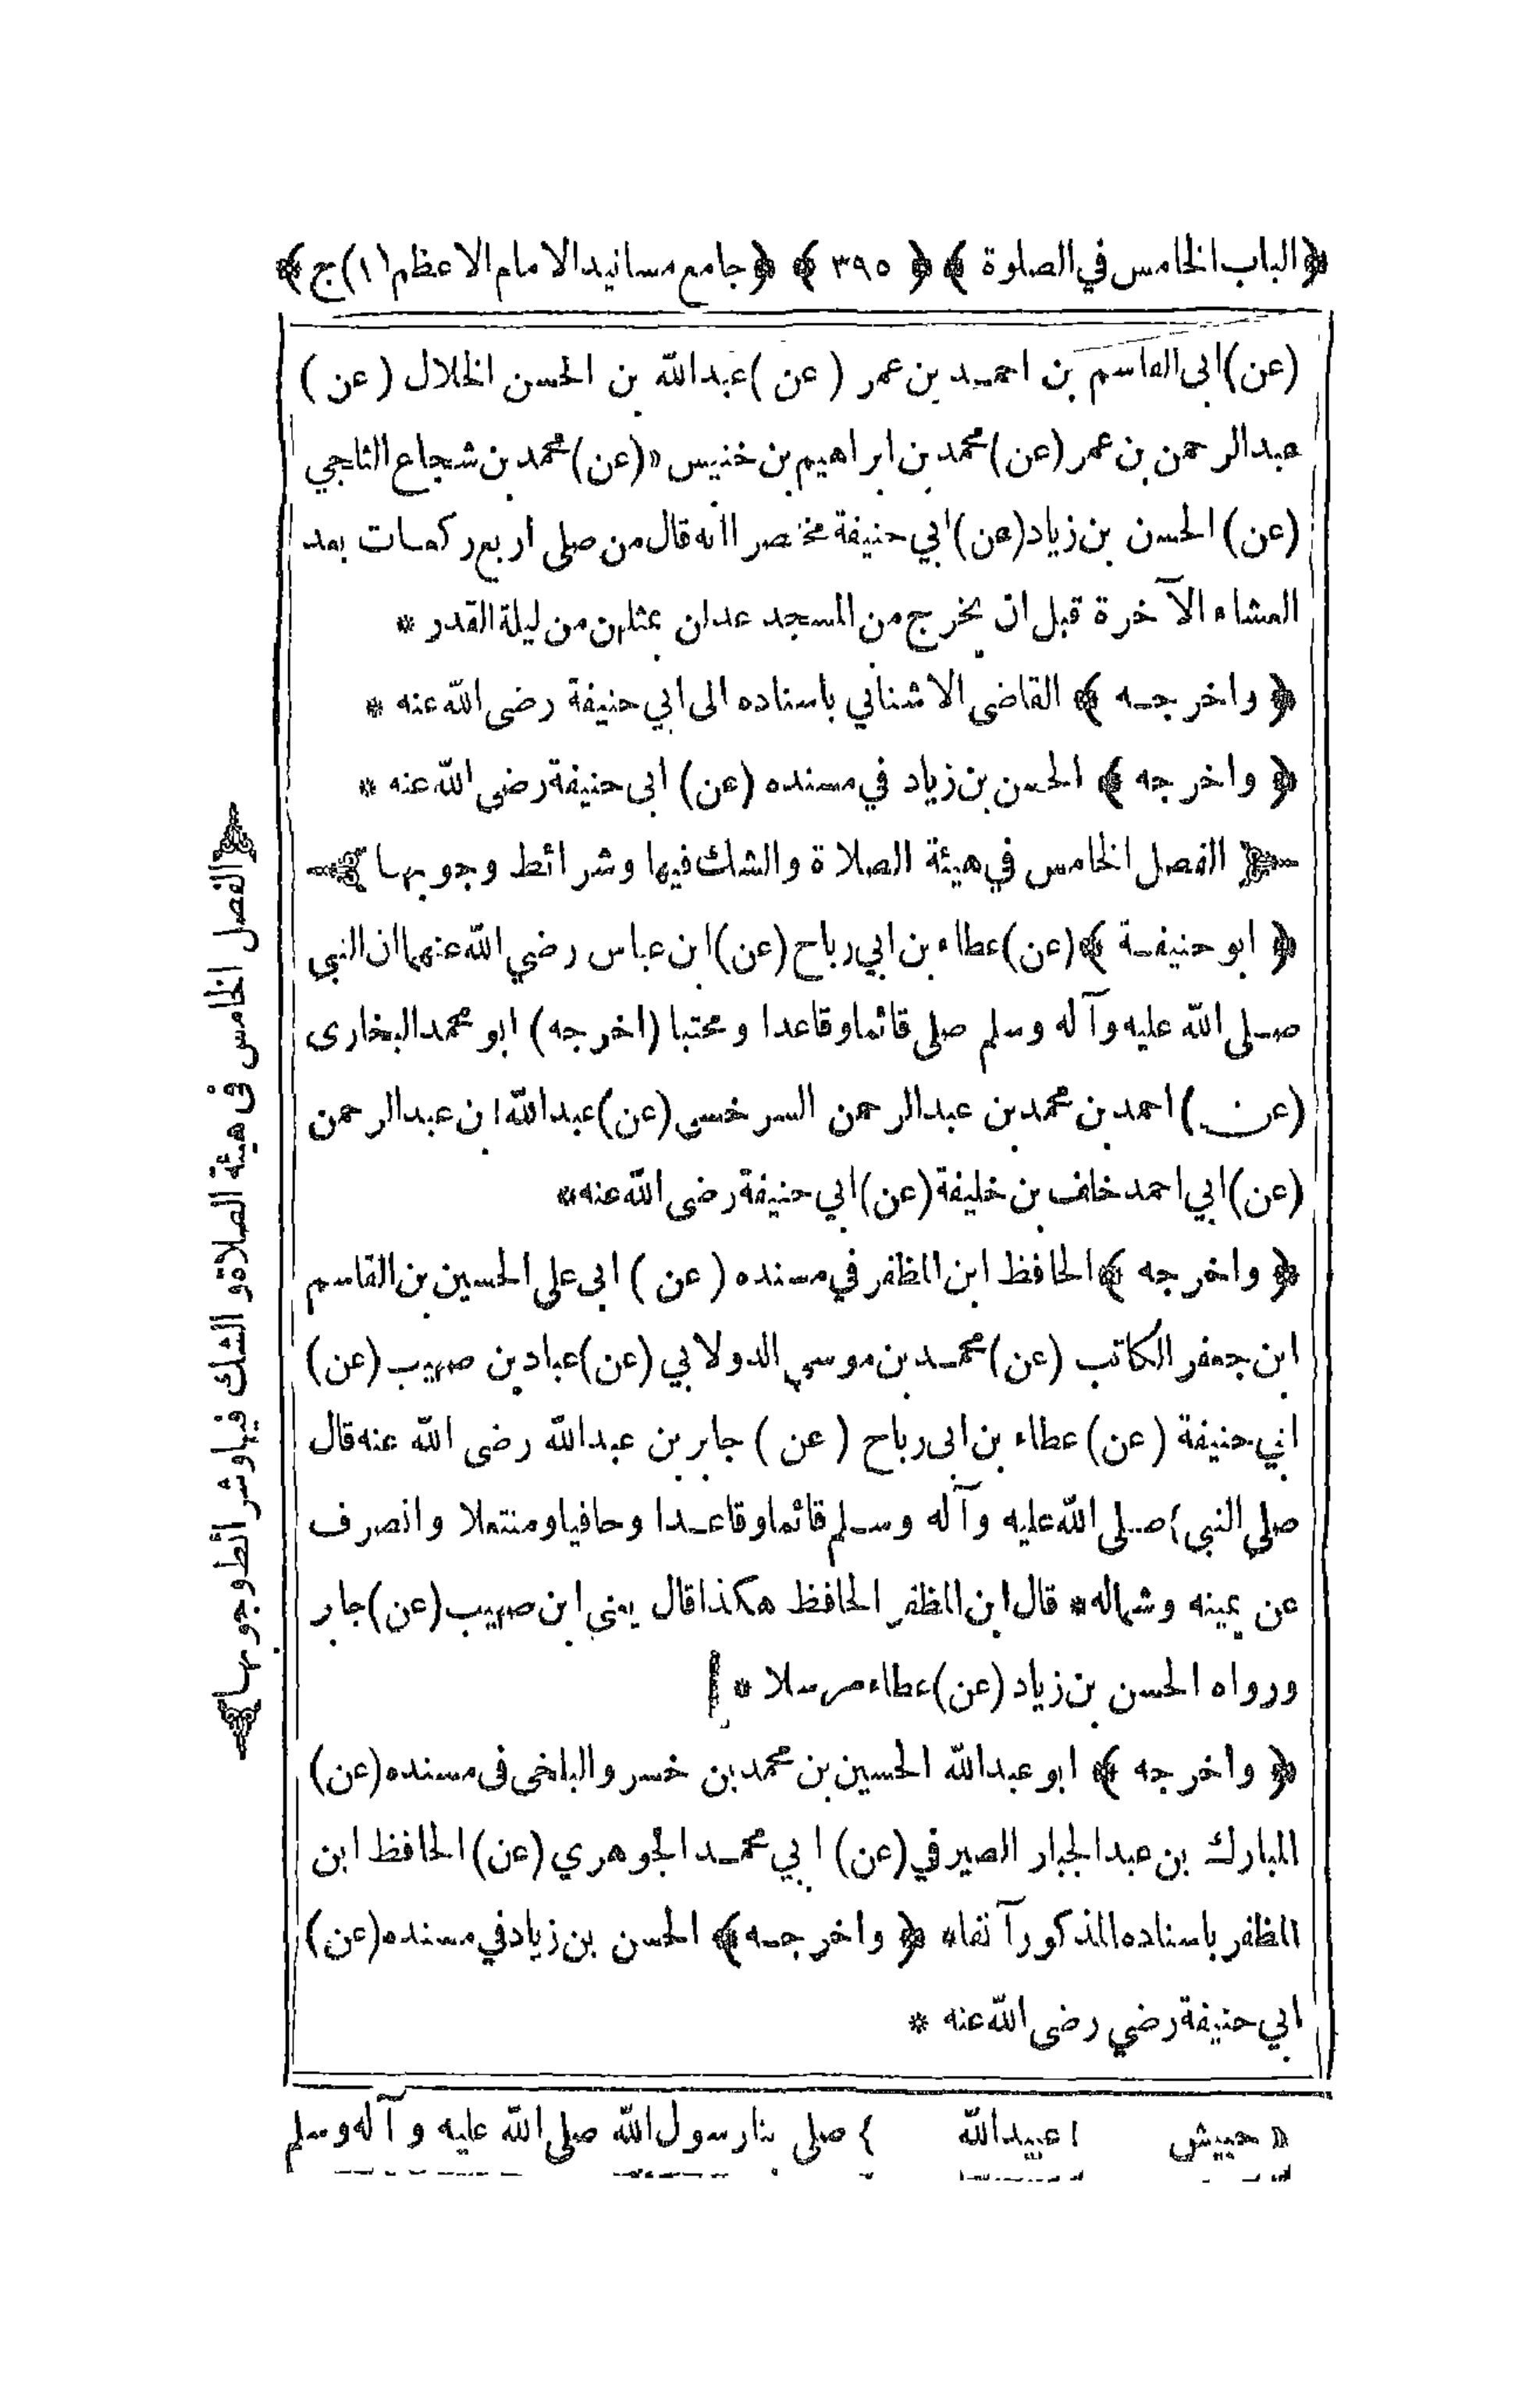 ﴿الباب الخامس في الصلوة﴾ ﴿٣٩٥﴾ ﴿جامع مسانيد الامام الاعظم (١) ج﴾
(عن) ابى القاسم بن احمد بن عمر (عن) عبدالله بن الحسن الخلال (عن)
عبدالرحمن بن عمر (عن) محمد بن ابراهيم بن خنيس «(عن) محمد بن شجاع الثلجي
(عن) الحسن بن زياد (عن) ابي حنيفة مختصرا انه قال من صلى اربع ركعات بعد
العشاء الآخرة قبل ان يخرج من المسجد عدلن بمثلهن من ليلة القدر *
﴿واخرجه﴾ القاضى الاشناني باسناده الى ابي حنيفة رضى الله عنه *
﴿واخرجه﴾ الحسن بن زياد في مسنده (عن) ابى حنيفة رضي الله عنه *
الفصل الخامس في هيئة الصلاة والشك فيها وشرائط وجوبها
﴿ابو حنيفة﴾ (عن) عطاء بن ابي رباح (عن) ابن عباس رضي الله عنهما ان النبي
صلى الله عليه وآله وسلم صلى قائما وقاعدا ومحتبا (اخرجه) ابو محمد البخارى
(عن) احمد بن محمد بن عبدالرحمن السرخسى (عن) عبدالله ا بن عبدالرحمن
(عن) ابي احمد خلف بن خليفة (عن) ابي حنيفة رضى الله عنه *
﴿واخرجه﴾ الحافظ ابن المظفر في مسنده (عن) ابى على الحسين بن القاسم
ابن جعفر الكاتب (عن) محمد بن موسى الدولابي (عن) عباد بن صهيب (عن)
ابي حنيفة (عن) عطاء بن ابى رباح (عن) جابر بن عبدالله رضى الله عنه قال
صلى النبى } صلى الله عليه وآله وسلم قائما وقاعدا وحافيا ومنتعلا وانصرف
عن يمينه وشماله * قال ابن المظفر الحافظ هكذا قال يعنى ابن صهيب (عن) جابر
ورواه الحسن بن زياد (عن) عطاء مرسلا *
﴿واخرجه﴾ ابو عبدالله الحسين بن محمد بن خسرو البلخى فى مسنده (عن)
المبارك بن عبدالجبار الصيرفي (عن) ابي محمد الجوهري (عن) الحافظ ابن
المظفر باسناده المذكور آنفا * ﴿واخرجه﴾ الحسن بن زياد في مسنده (عن)
ابي حنيفة رضي رضى الله عنه *
« حبيش ا عبيدالله } صلى بنا رسول الله صلى الله عليه وآله وسلم
﴿الفصل الخامس فى هيئة الصلاة والشك فيها وشرائط وجوبها﴾